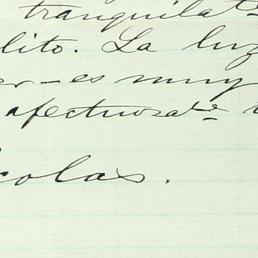 tranquila
lito. La luz
er-es muy
afectuosa
colas.